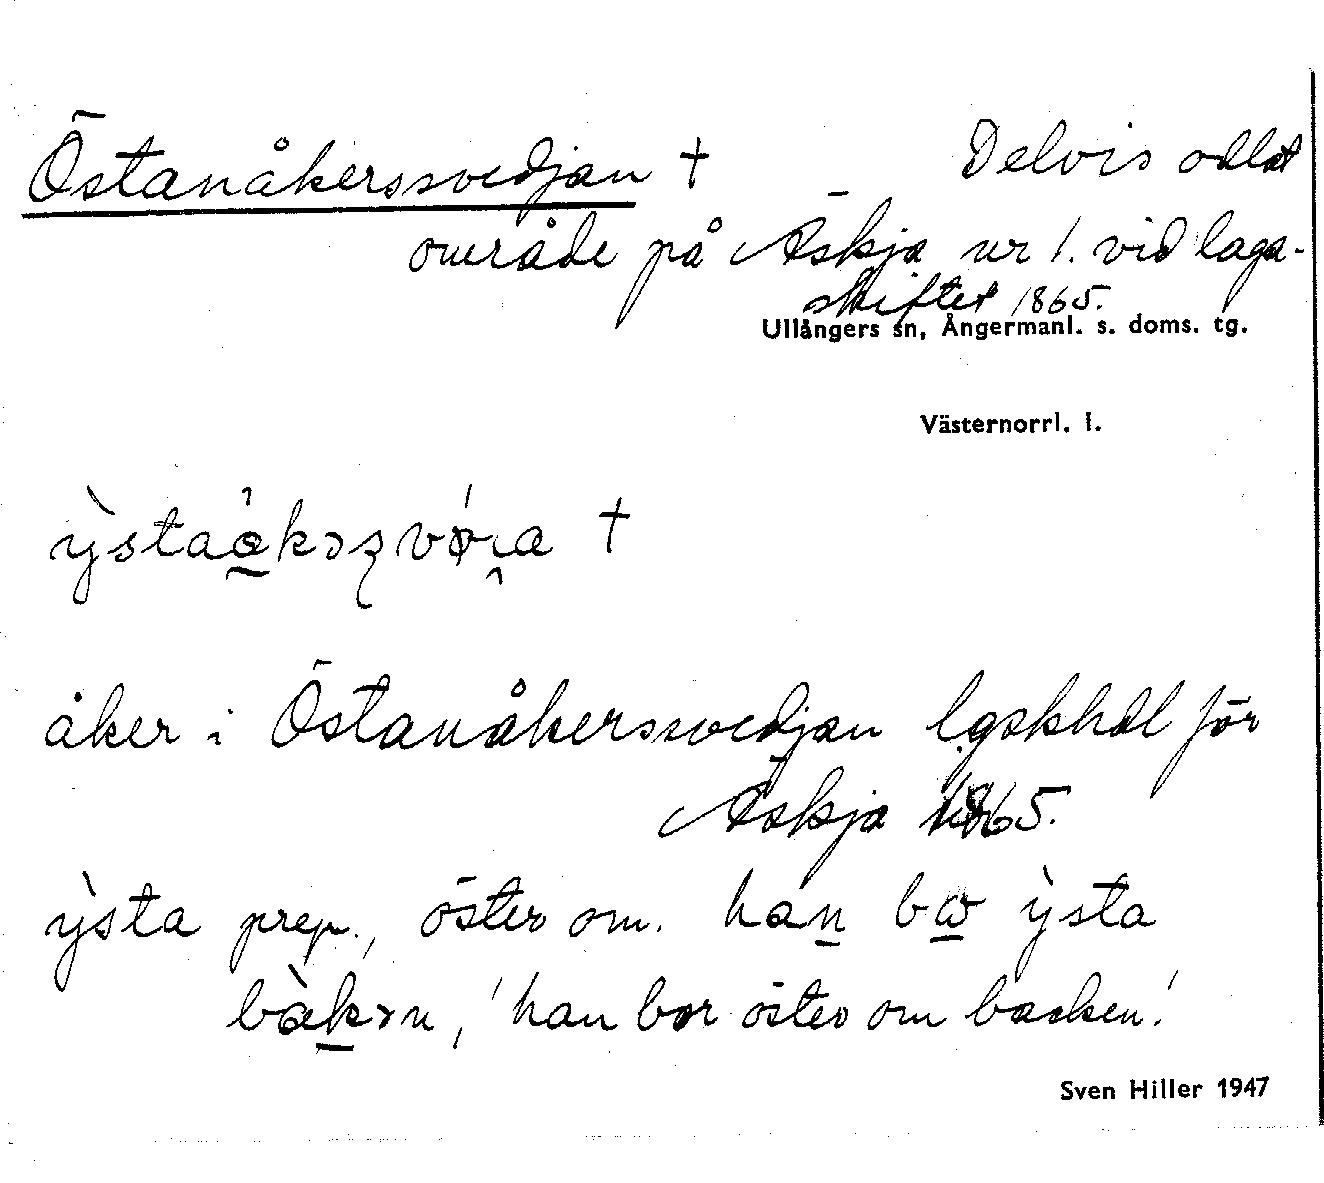 Östanåkerssvedjan † Delvis odlat
område på Äskja nr 1. vid laga-
skiftet 1865.
Ullångers sn, Ångermanl. s. doms. tg.
Västernorrl. l.
†
åker i Östanåkerssvedjan lgskhdl för
Äskja 1865.
ỳsta prep., öster om. han bω ỳsta
bàkɔn, 'han bor öster om backen.'
Sven Hiller 1947